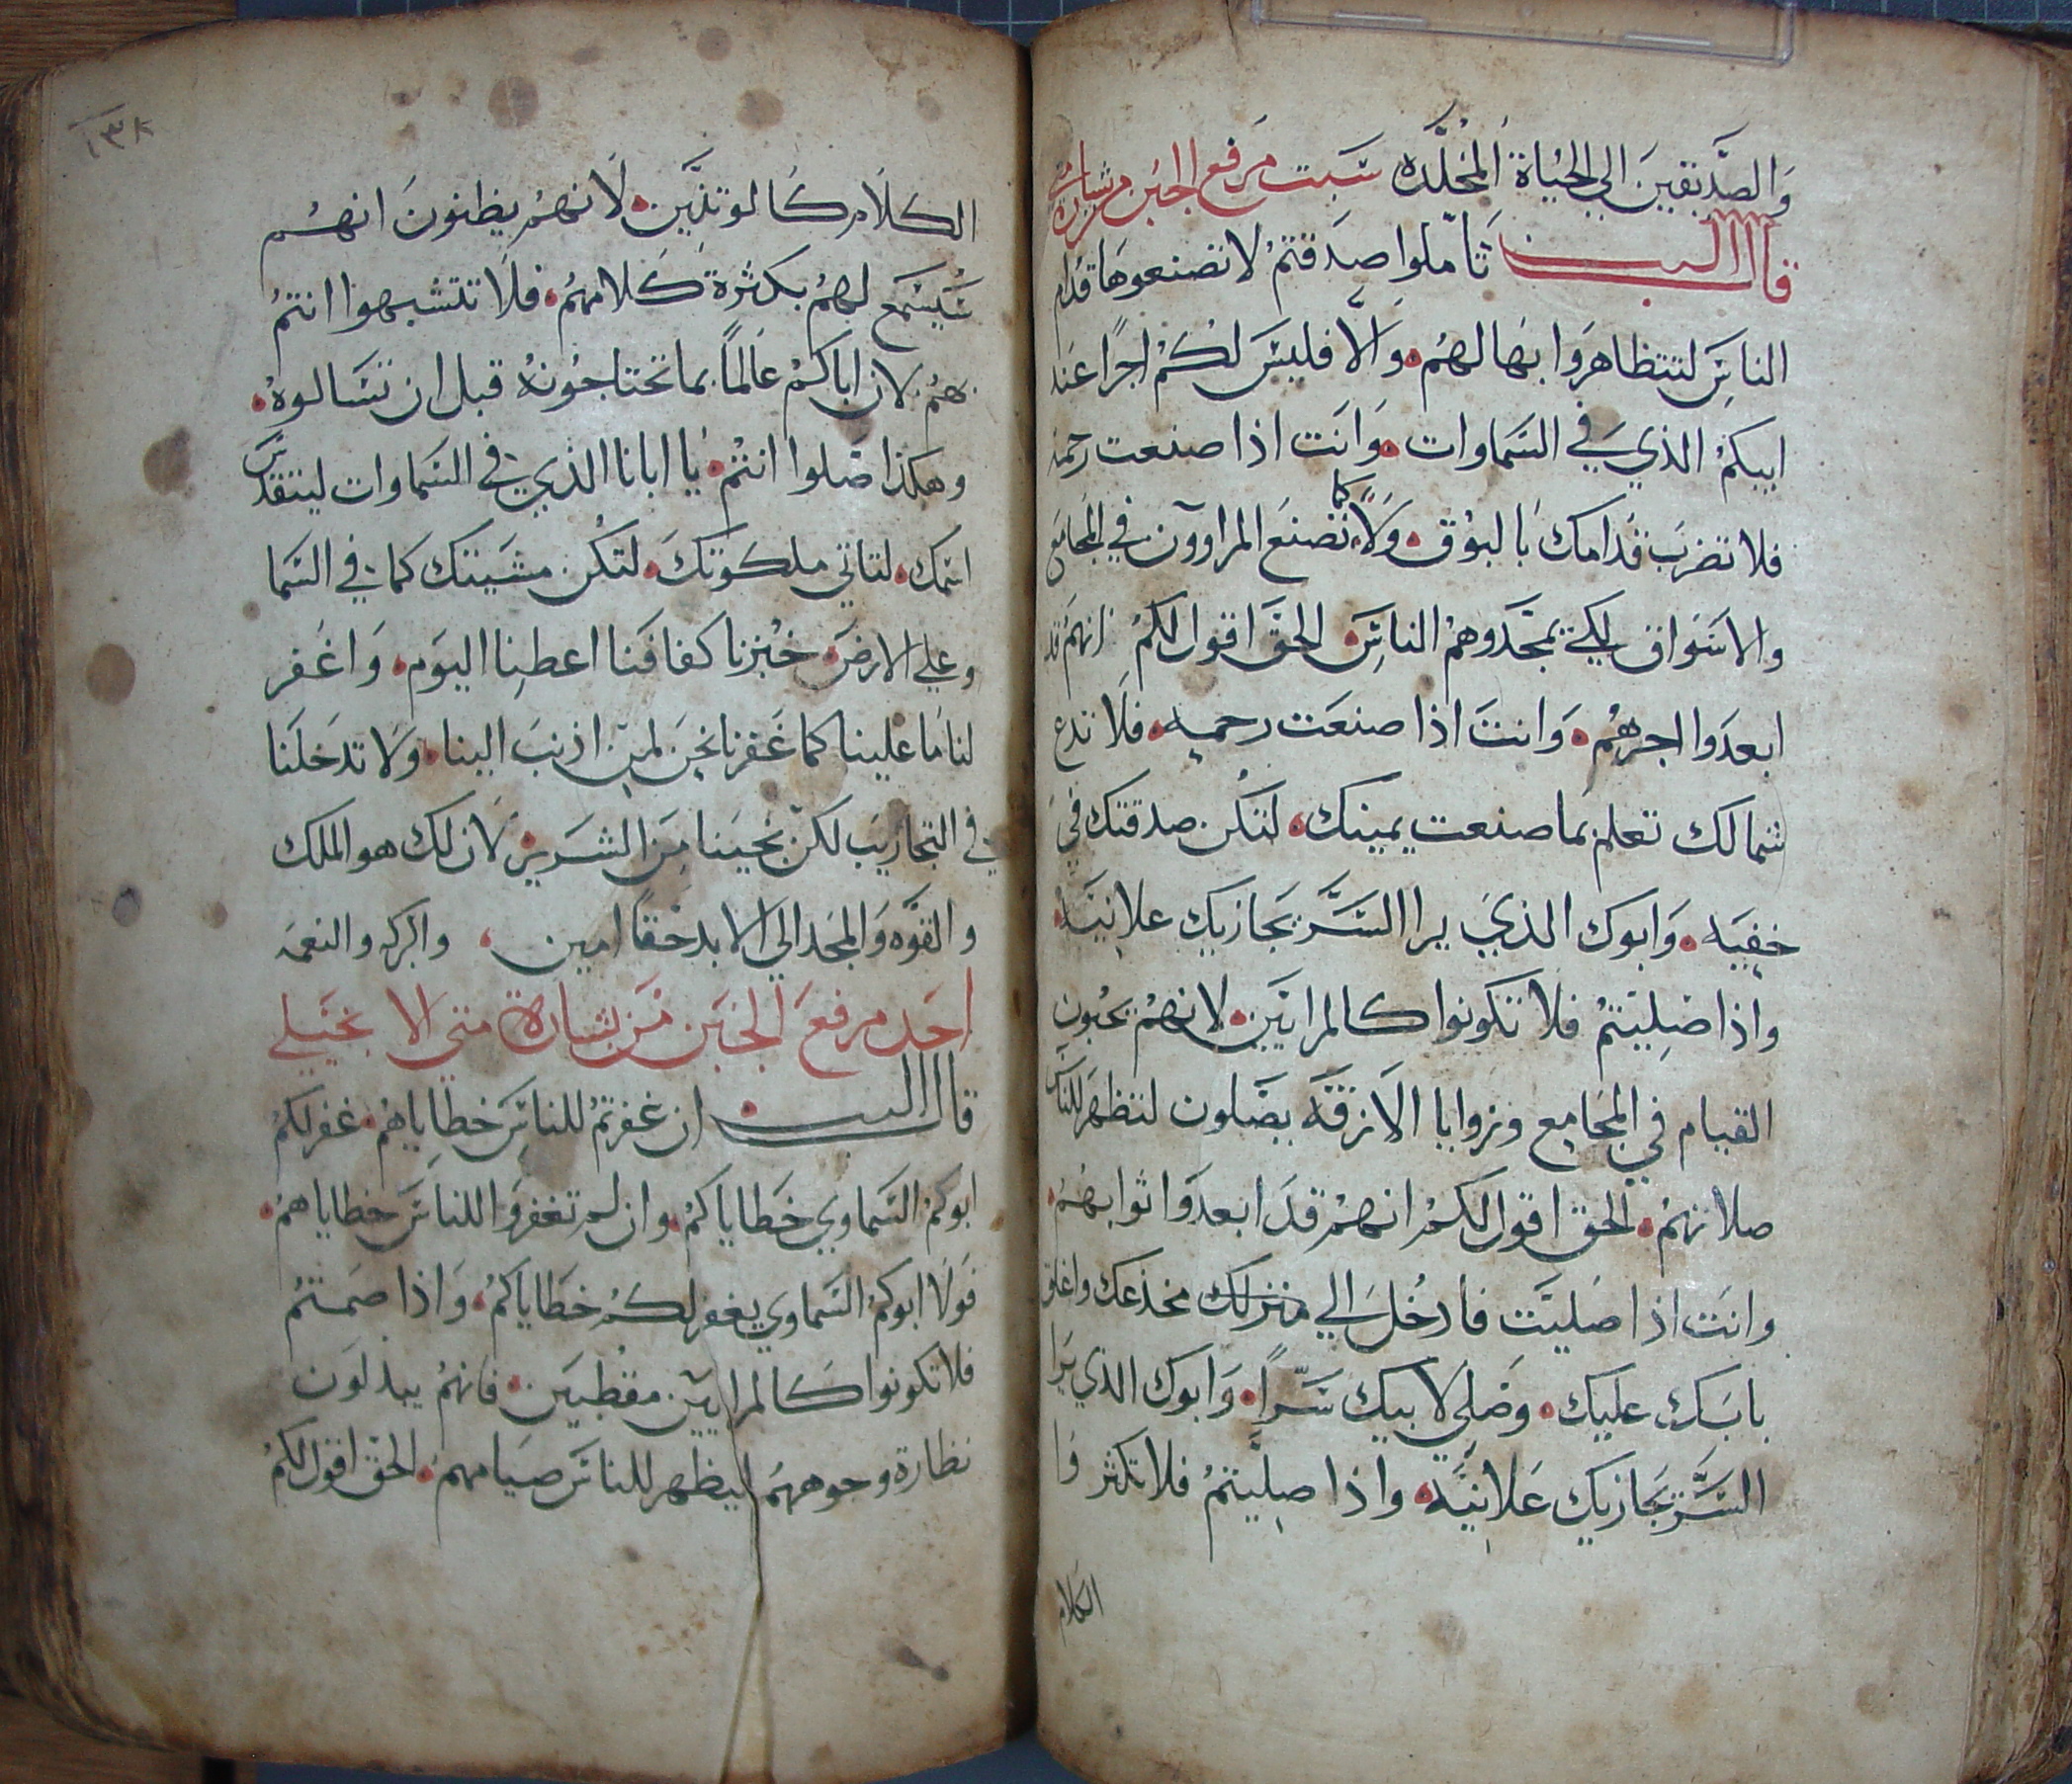 والصديقين الي الحياة المخلده سبت مرفع الجبن من بشارة متي
قال الرب تاملوا صدقتم لا تصنعوها قدام
الناس لتتظاهروا بها لهم والا فليس لكم اجرا عند
ابيكم الذي في السماوات وانت اذا صنعت رحمه
فلا تضرب قدامك بالبوق ولا كما تصنع المراوون في المجامع
والاسواق لكي يمجدوهم الناس الحق اقول لكم انهم قد
ابعدوا اجرهم وانت اذا صنعت رحمه فلا تدع
شمالك تعلم بما صنعت يمينك لتكن صدقتك في
خفيه وابوك الذي يرا السر يجازيك علانيه
واذا صليتم فلا تكونوا كالمرايين لانهم يحبون
القيام في المجامع وزوايا الازقه يصلون لتظهر للناس
صلاتهم الحق اقول لكم انهم قد ابعدوا ثوابهم
وانت اذا صليت فادخل الي منزلك مخدعك واغلق
بابك عليك وصلي لابيك سرا وابوك الذي يرا
السر يجازيك علانيه واذا صليتم فلا تكثروا
الكلام
١٣٨
الكلام كالوتنيين لانهم يظنون انهم
سيسمع لهم بكثرة كلامهم فلا تتشبهوا انتم
بهم لان اباكم عالما بما تحتاجونه قبل ان تسالوه
وهكذا صلوا انتم يا ابانا الذي في السماوات ليتقدس
اسمك لتاتي ملكوتك لتكن مشيتك كما في السما
وعلي الارض خبزنا كفافنا اعطينا اليوم واغفر
لنا ما علينا كما غفرنا نحن لمن اذنب الينا ولا تدخلنا
في التجاريب لكن نجينا من الشرير لان لك هو الملك
والقوه والمجد الي الابد حقا امين والبركه والنعمه
احد مرفع الجبن من بشارة متي الانجيلي
قال الرب ان غفرتم للناس خطاياهم غفر لكم
ابوكم السماوي خطاياكم وان لم تغفروا للناس خطاياهم
فولا ابوكم السماوي يغفر لكم خطاياكم واذا صمتم
فلا تكونوا كالمرايين مقطبين فانهم يبدلون
نظارة وجوههم ليظهر للناس صيامهم الحق اقول لكم